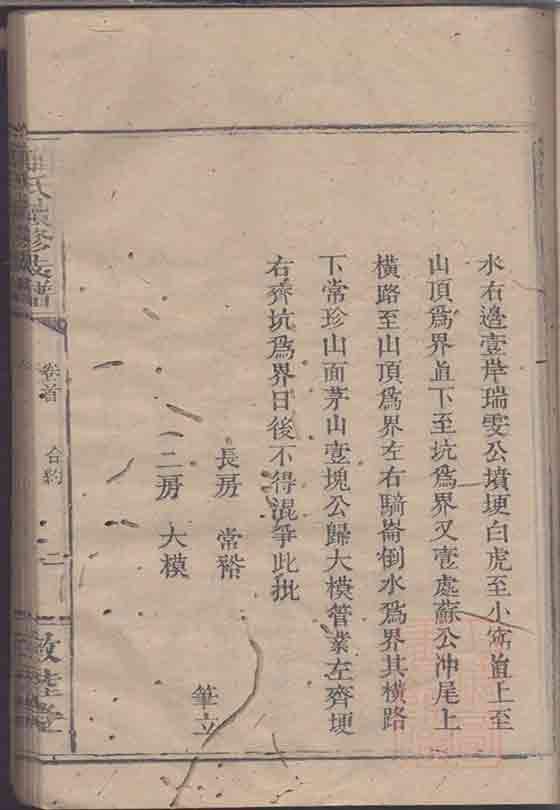 水右邉壹岸瑞雯公墳埂白虎至小窩直上至
山頂爲界直下至坑爲界又壹處蘇公冲尾上
橫路至山頂爲界左右騎崙倒水爲界其橫路
下常珍山面茅山壹塊公歸大模管業左齊埂
右齊坑爲界日後不得混爭此批
長房 常裕
二房 大模
筆立
氏 修 譜
卷首 合約 二
敦睦堂